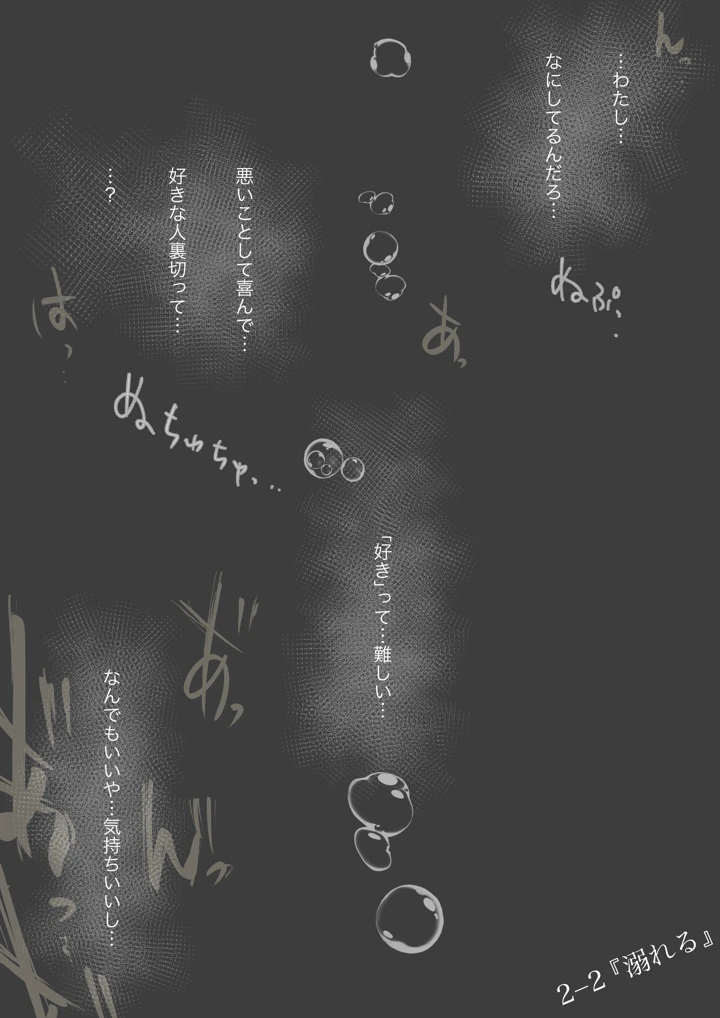 んっ
…わたし…
なにしてるんだろ…
ねぷっ…
あっ
悪いことして喜んで…
好きな人裏切って…
…？
はっ…
ぬちゅちゅ…
「好き」って…難しい…
あ゛っ
なんでもいいや…気持ちいいし…
ん゛っ
2-2『溺れる』